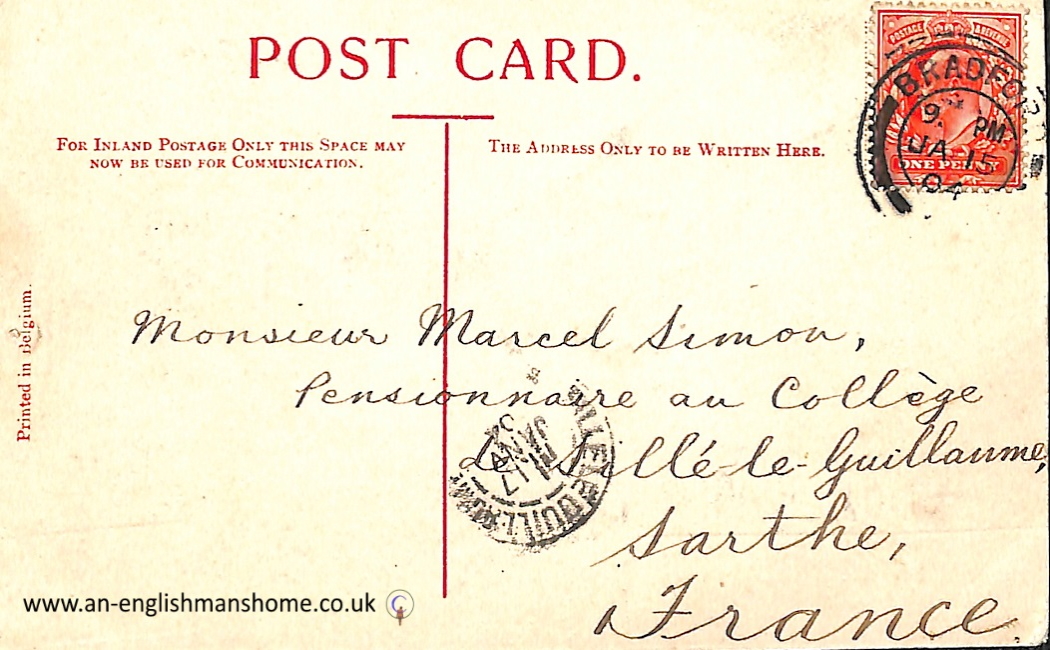 POST CARD.
POSTAGE & REVENUE
BRADFORD
9. PM
JA 15
04
ONE PENNY
FOR INLAND POSTAGE ONLY THIS SPACE MAY
NOW BE USED FOR COMMUNICATION.
THE ADDRESS ONLY TO BE WRITTEN HERE.
Printed in Belgium.
Monsieur Marcel Simon,
Pensionnaire au Collège
de Sillé-le-Guillaume,
Sarthe,
France.
SILLE LE GUILLAUME
17
JANV
04
www.an-englishmanshome.co.uk